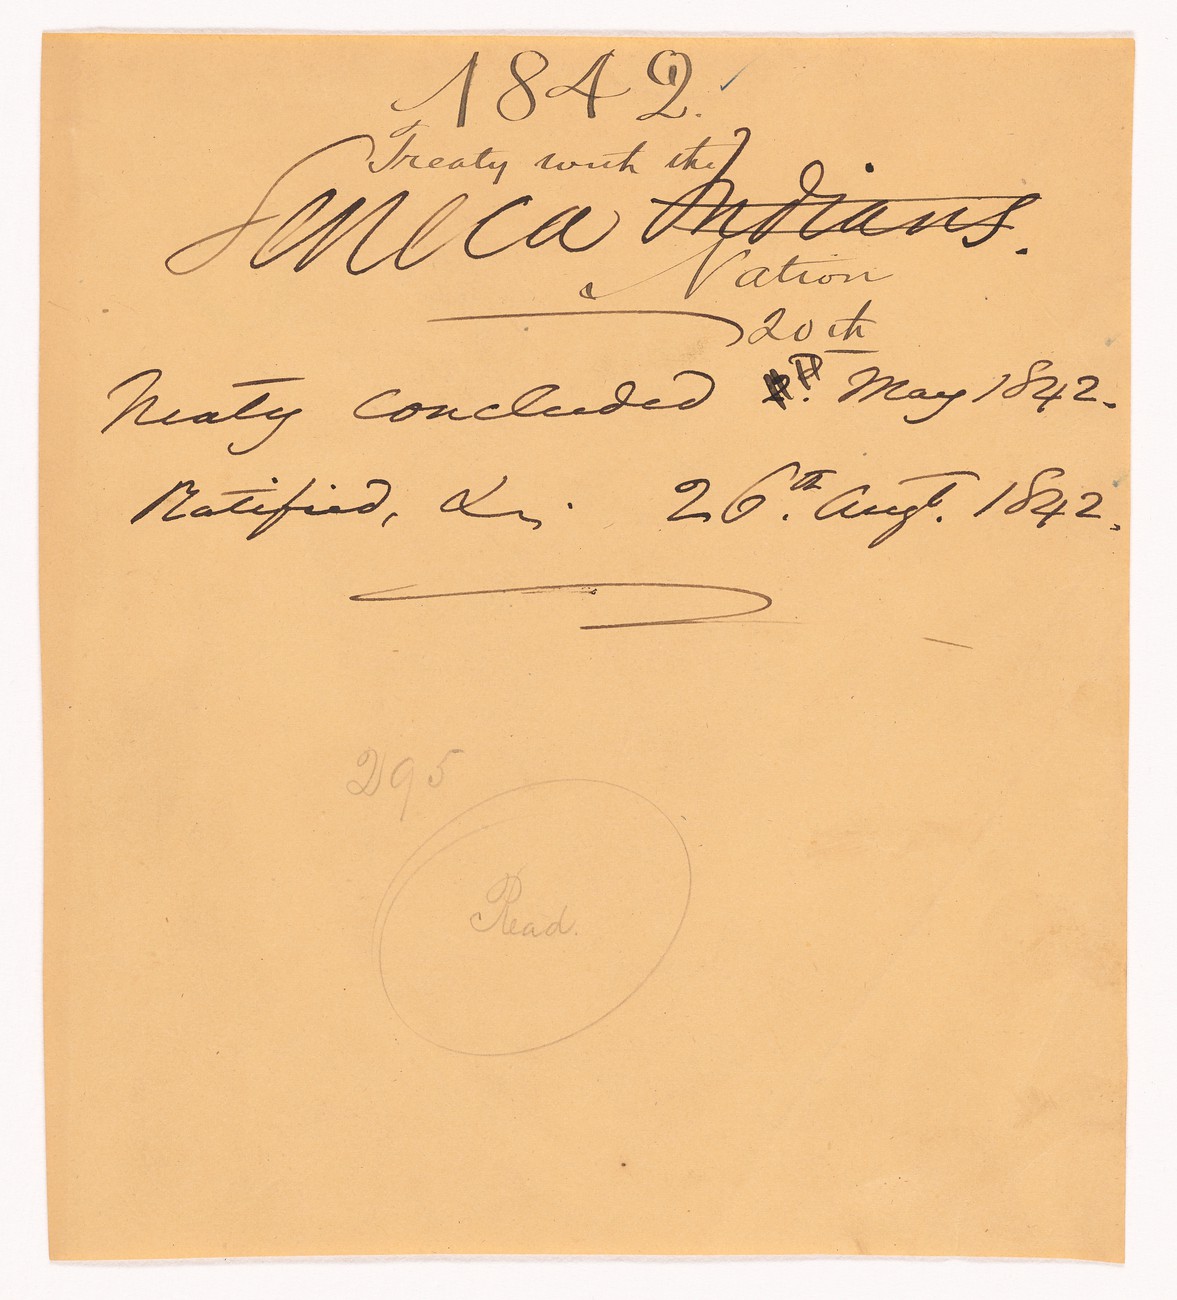 1842.
Treaty with the
Seneca Indians.
Nation
20th
Treaty concluded May 1842.
Ratified, &c. 26th. Augt. 1842.
295
Read.